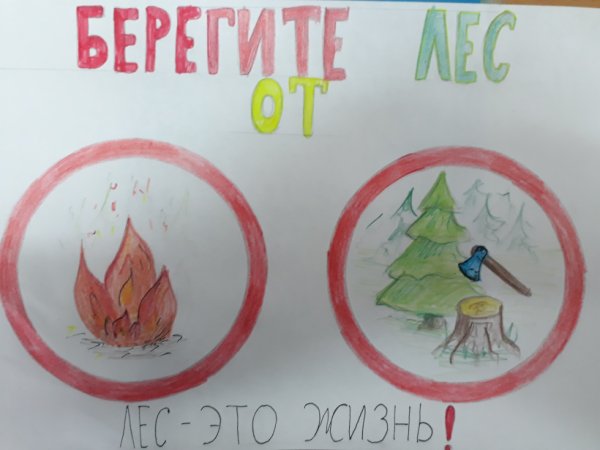 БЕРЕГИТЕ ЛЕС
ОТ
ЛЕС - ЭТО ЖИЗНЬ!